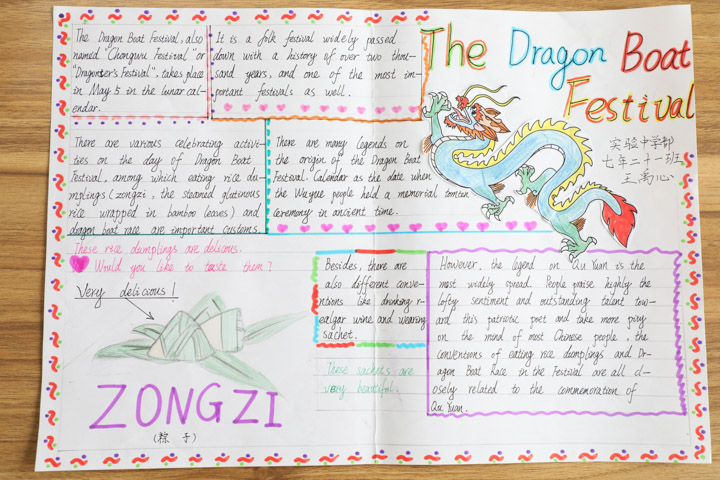 The Dragon Boat
Festival
实验中学部
七年二十一班
王禹心
The Dragon Boat Festival, also
named "Chongwu Festival" or
"Dragonter's Festival", takes place
in May 5 in the lunar cal-
endar.
It is a folk festival widely passed
down with a history of over two thou-
sand years, and one of the most im-
portant festivals as well.
There are various celebrating activi-
ties on the day of Dragon Boat
Festival, among which eating rice du-
mplings (zongzi, the steamed glutinous
rice wrapped in bamboo leaves) and
dragon boat race are important customs.
There are many legends on
the origin of the Dragon Boat
Festival. Calendar as the date when
the Wuyue people held a memorial tomten
ceremony in ancient time.
These rice dumplings are delicious.
Would you like to taste them?
Very delicious!
ZONGZI
(粽子)
Besides, there are
also different conve-
ntions like drinking r-
ealgar wine and wearing
sachet.
These sachets are
very beautiful.
However, the legend on Qu Yuan is the
most widely spread. People praise highly the
lofty sentiment and outstanding talent tow-
ard this patriotic poet and take more pity
on the mind of most Chinese people, the
conventions of eating rice dumplings and Dr-
agon Boat Race in the Festival are all cl-
osely related to the commemoration of
Qu Yuan.